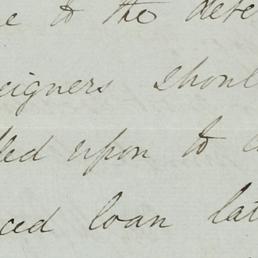 e to the dete
eigners shoul
lled upon to a
ced loan lat